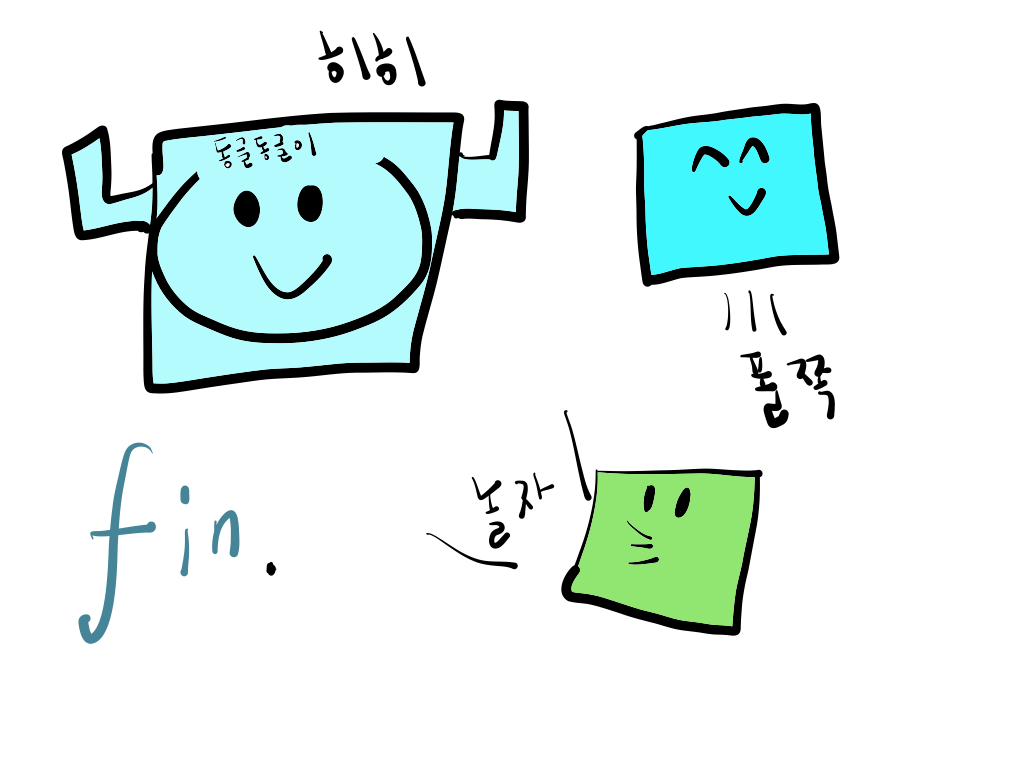 히히
동글동글이
폴짝
놀자
fin.